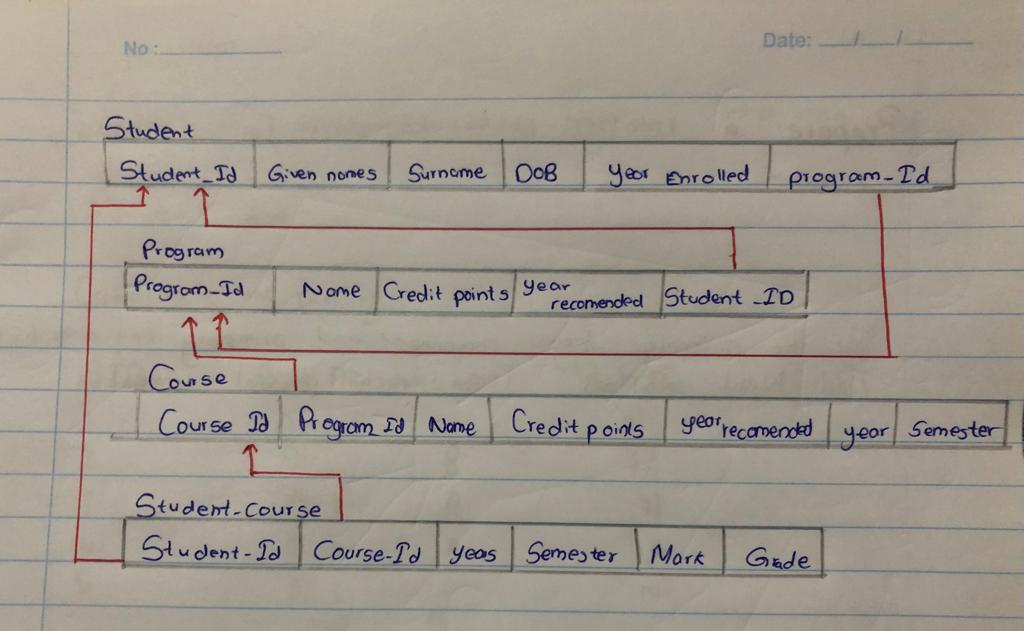 No: Date: / /
Student
Student_Id Given names Surname DOB year Enrolled program_Id
Program
Program_Id Name Credit points year recomended Student_ID
Course
Course Id Program_Id Name Credit points year recomended year Semester
Student-course
Student-Id Course-Id years Semester Mark Grade